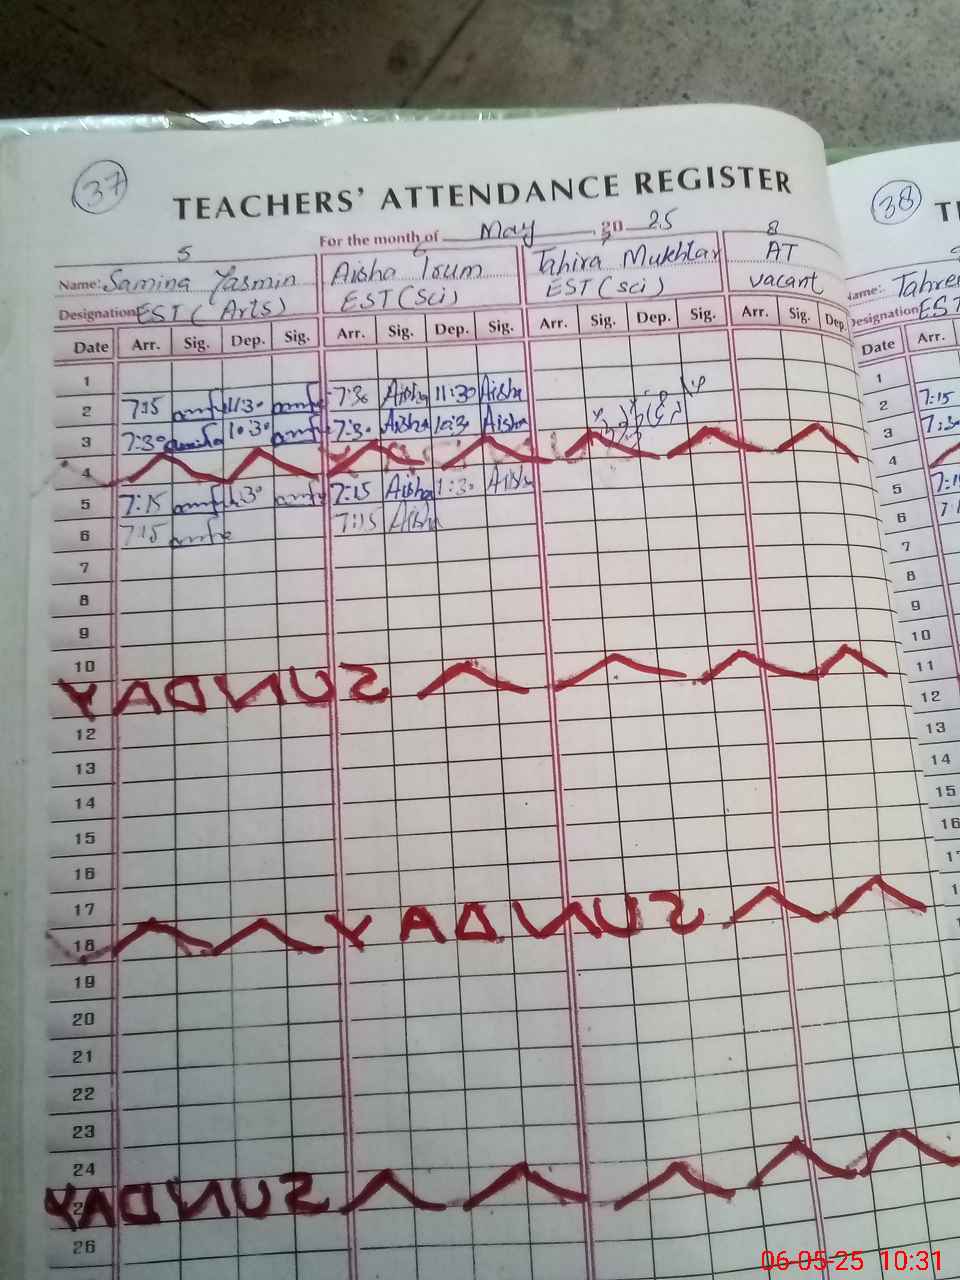 37
TEACHERS' ATTENDANCE REGISTER
For the month of May, 20 25
5 6 7 8
Name: Samina Yasmin Aisha Irum Tahira Mukhtar AT
Designation EST (Arts) EST (Sci) EST (Sci) vacant
Date Arr. Sig. Dep. Sig. Arr. Sig. Dep. Sig. Arr. Sig. Dep. Sig. Arr. Sig. Dep.
1
2 7:15 11:30 7:30 Aisha 11:30 Aisha
3 7:30 10:30 7:30 Aisha 10:30 Aisha
4
5 7:15 1:30 7:15 Aisha 1:30 Aisha
6 7:15 7:15 Aisha
7
8
9
10
SUNDAY
12
13
14
15
16
17
18 SUNDAY
19
20
21
22
23
24
2 SUNDAY
26
38
Name: Tahre
Designation EST
Date Arr.
1
2 7:15
3 7:3
4
5 7:1
6 7:1
7
8
9
10
11
12
13
14
15
16
06-05-25 10:31